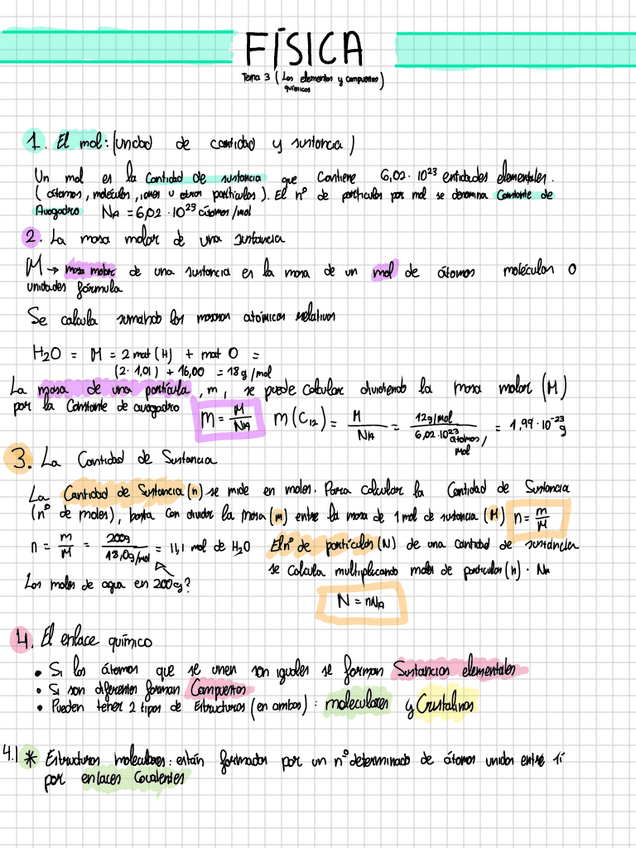 FÍSICA
Tema 3 (Los elementos y compuestos
químicos)
1. El mol: (unidad de cantidad y sustancia)
Un mol es la cantidad de sustancia que contiene 6,02 · 10²³ entidades elementales.
(átomos, moléculas, iones u otras partículas). El nº de partículas por mol se denomina Constante de
Avogadro NA = 6,02 · 10²³ átomos/mol
2. La masa molar de una sustancia
M → masa molar de una sustancia es la masa de un mol de átomos moléculas o
unidades fórmula
Se calcula sumando las masas atómicas relativas
H2O = M = 2 mat (H) + mat O =
(2 · 1,01) + 16,00 = 18 g/mol
La masa de una partícula, m, se puede calcular dividiendo la masa molar (M)
por la constante de avogadro m = M/NA m (C12) = M/NA = 12g/mol / 6,02·10²³ átomos/mol = 1,99 · 10⁻²³ g
3. La Cantidad de Sustancia
La Cantidad de Sustancia (n) se mide en moles. Para calcular la Cantidad de Sustancia
(nº de moles), basta con dividir la masa (m) entre la masa de 1 mol de sustancia (M) n = m/M
n = m/M = 200g / 18,0g/mol = 11,1 mol de H2O El nº de partículas (N) de una cantidad de sustancia
Los moles de agua en 200g? se calcula multiplicando moles de partículas (n) · NA
N = nNA
4. El enlace químico
• Si los átomos que se unen son iguales se forman Sustancias elementales
• Si son diferentes forman Compuestos
• Pueden tener 2 tipos de Estructuras (en ambos): moleculares y Cristalinas
4.1 * Estructuras moleculares: están formadas por un nº determinado de átomos unidos entre sí
por enlaces Covalentes